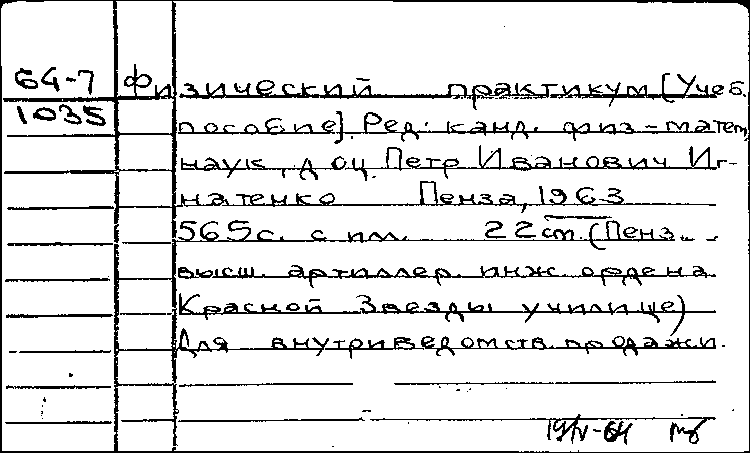 64-7 Физический практикум [Учеб.
1035 пособие]. Ред. канд. физ-матем,
наук, доц. Петр Иванович Иг-
натенко Пенза, 1963
565с. с ил. 22см. (Пенз.
высш. артиллер. инж. ордена
Красной Звезды училище)
Для внутриведомств. продажи.
19/V-64